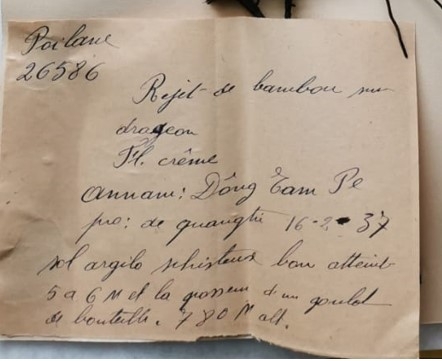 Poilane
26586
Rejet de bambou sur
drageon
Fl. crême
Annam: Dông Tam Pe
pro: de quangtri 16-2-37
sol argilo schisteux bon atteint
5 a 6 M et la grosseur d'un goulot
de bouteille. 780 M alt.